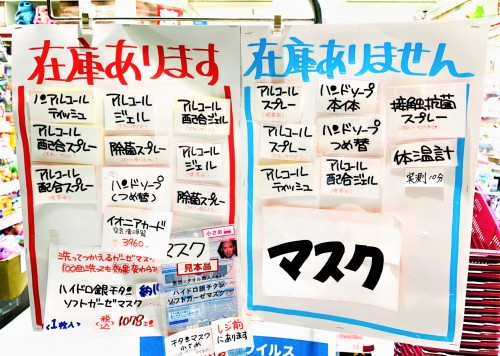 在庫あります
アルコール
ティッシュ
アルコール
ジェル
アルコール
配合ジェル
アルコール
配合スプレー
除菌スプレー
アルコール
ジェル
アルコール
配合スプレー
ハンドソープ
(つめ替)
除菌スプレー
イオニアカード
空気清浄
3960
洗ってつかえるガーゼマスク
100回洗っても効果変わらず
ハイドロ銀チタン
ソフトガーゼマスク
<1枚入>
税込
1078
小さめ
マスク
見本品
ハイドロ銀チタン
ソフトガーゼマスク
チタンマスク
小さめ
レジ前
にあります
在庫ありません
アルコール
スプレー
ハンドソープ
本体
接触抗菌
スプレー
アルコール
スプレー
ハンドソープ
つめ替
体温計
実測10分
アルコール
ティッシュ
アルコール
配合ジェル
マスク
ウイルス